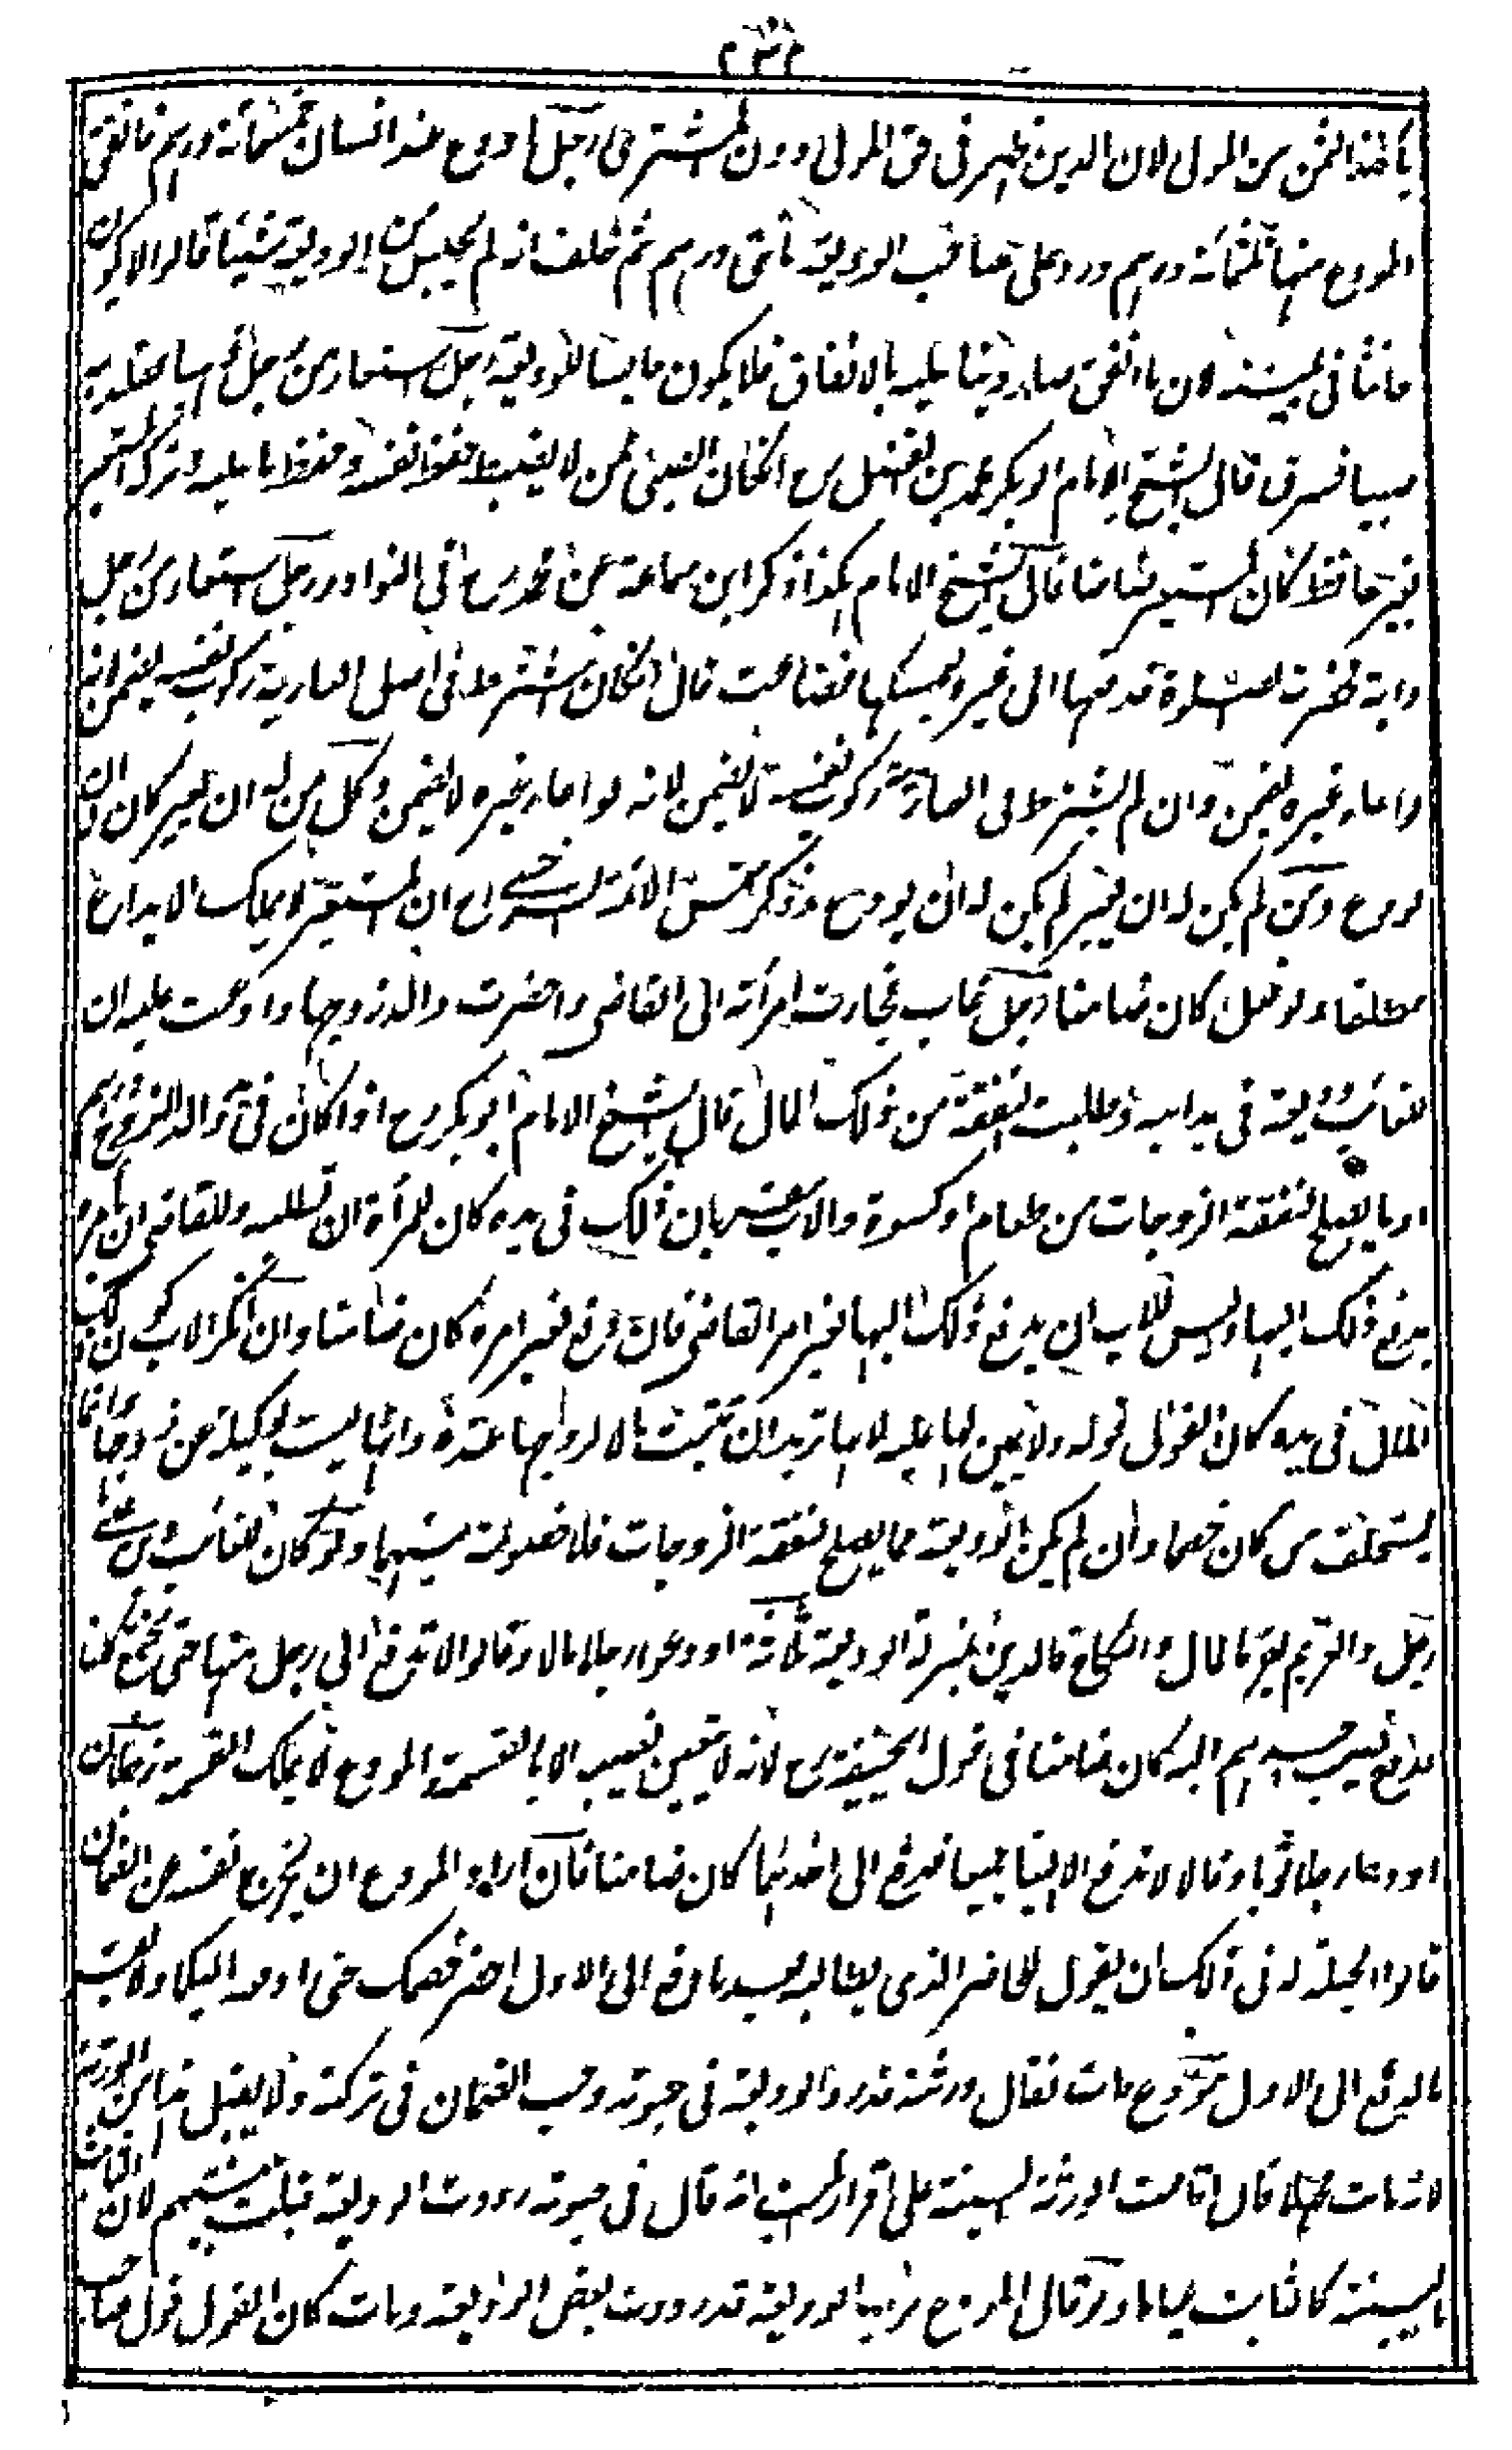 ٢٣٢
يأخذ الثمن من المولى لان الدين ظهر فى حق المولى دون المشترى رجل اودع عند انسان خمسمائة درهم فانفق
المودع منها ثلثمائة درهم ورد على صاحب الوديعة مأتى درهم ثم حلف انه لم يحبس من الوديعة شيئا قالوا لا يكون
حانثا فى يمينه لان ما انفق صار دينا عليه بالانفاق فلا يكون حابسا للوديعة رجل استعار من رجل
فسرق قال الشيخ الامام ابو بكر محمد بن الفضل رح ان كان الصبى ممن لا يضبط حفظ نفسه وحفظ ما عليه وتركه المستعير
بغير حافظ كان المستعير ضامنا قال الشيخ الامام هكذا ذكر ابن سماعة عن محمد رح فى النوادر رجل استعار من رجل
دابة فحضرت الصلوة فدفعها الى غيره ليمسكها فضاعت قال ان كان شرط فى اصل العارية ركوب نفسه يضمن لانه
لو اعار غيره يضمن وان لم يشترط فى العارية ركوب نفسه لا يضمن لانه لو اعار غيره لا يضمن وكل من له ان يعير كان له ان
يودع ومن لم يكن له ان يعير لم يكن له ان يودع وذكر شمس الائمة السرخسى رح ان المستعير لا يملك الايداع
مطلقا ولو فعل كان ضامنا رجل غاب فجاءت امرأته الى القاضى واحضرت والد زوجها وادعت عليه ان
للغائب وديعة فى يد ابيه وطلبت النفقة من ذلك المال قال الشيخ الامام ابو بكر رح اذا كان فى يد والد الزوج دراهم
او ما يصلح لنفقة الزوجات من طعام او كسوة والاب مقر بان ذلك فى يده كان للمرأة ان تطلبه وللقاضى ان يأمره
بدفع ذلك اليها وليس للاب ان يدفع ذلك اليها بغير امر القاضى فان دفع بغير امره كان ضامنا وان انكر الاب كون
المال فى يده كان القول قوله ولا يمين لها عليه لانها تريد ان تثبت مالا لزوجها عنده وانها ليست بوكيلة عن زوجها وانما
يستحلف من كان خصما وان لم يكن الوديعة مما يصلح لنفقة الزوجات فلا خصومة بينهما ولو كان للغائب دين على
رجل والغريم يقر بالمال والنكاح فالدين بمنزلة الوديعة ثلاثة اودعوا رجلا مالا وقالوا لا تدفع الى رجل منها حتى نجتمع كلنا
فدفع نصيب احدهم اليه كان ضامنا فى قول ابى حنيفة رح لانه لا يتعين نصيبه الا بالقسمة والمودع لا يملك القسمة رجلان
اودعا رجلا ثوبا وقالا لا تدفع الا الينا جميعا فدفع الى احدهما كان ضامنا فان اراد المودع ان يخرج نفسه من الضمان
قالوا الحيلة له فى ذلك ان يقول للحاضر الذى يطالبه بعد ما دفع الى الاول احضر خصمك حتى ادفعه اليكما ولا يقر
بالدفع الى الاول مودع مات فقال ورثته قد رد الوديعة فى حيوته وجب الضمان فى تركته ولا يقبل قول الورثة
لانه مات مجهلا فان اقامت الورثة البينة على اقرار الميت انه قال فى حيوته رددت الوديعة قبلت بينتهم لان الثابت
بالبينة كالثابت عيانا ولو قال المودع لرب الوديعة قد رددت بعض الوديعة ومات كان القول قول صاحب